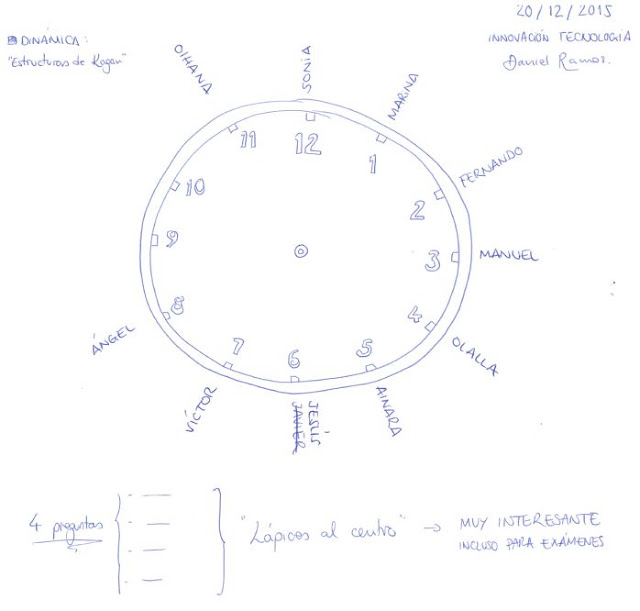 20/12/2015
DINÁMICA:
INNOVACIÓN TECNOLOGIA
"Estructuras de Kagan"
Daniel Ramos.
OIHANA
SONIA
MARINA
FERNANDO
MANUEL
OLALLA
AINARA
JESÚS
JAVIER
VÍCTOR
ÁNGEL
12
1
2
3
4
5
6
7
8
9
10
11
4 preguntas
"Lápices al centro" → MUY INTERESANTE
INCLUSO PARA EXÁMENES